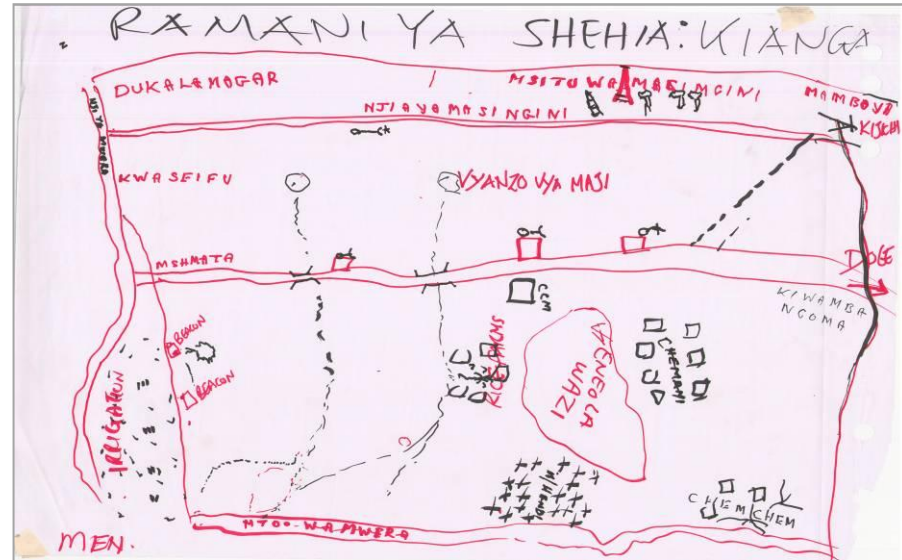 RAMANI YA SHEHIA: KIANGA
DUKALAMOGAR
MSITU WA MASINGINI
MAMBOYA
KISKHA
NJIAYAMASINGINI
NJI YA MWERA
KWASEIFU
VYANZO VYA MAJI
MSHMATA
DOLE
CCM
KIWAMBA
NGOMA
BEACON
BEACON
ENEO LA
WAZI
CHEMANI
IRRIGATION
CHEMCHEM
MTOO-WAMWERA
MEN.